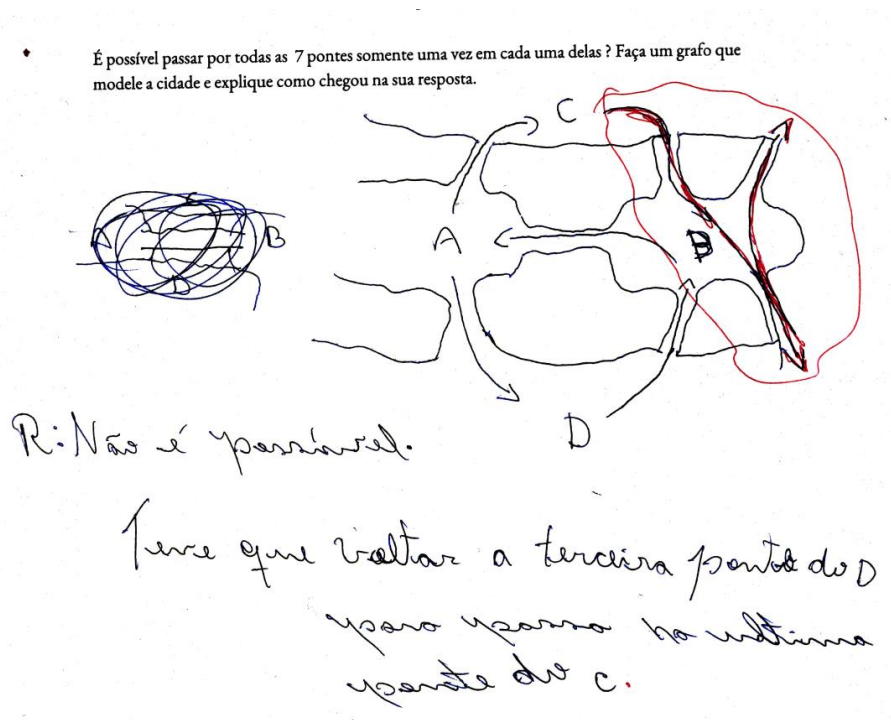 É possível passar por todas as 7 pontes somente uma vez em cada uma delas ? Faça um grafo que
modele a cidade e explique como chegou na sua resposta.
C
B
A
B
D
R: Não é possível.
Teve que voltar a terceira ponte do D
para na ultima
ponte do C.